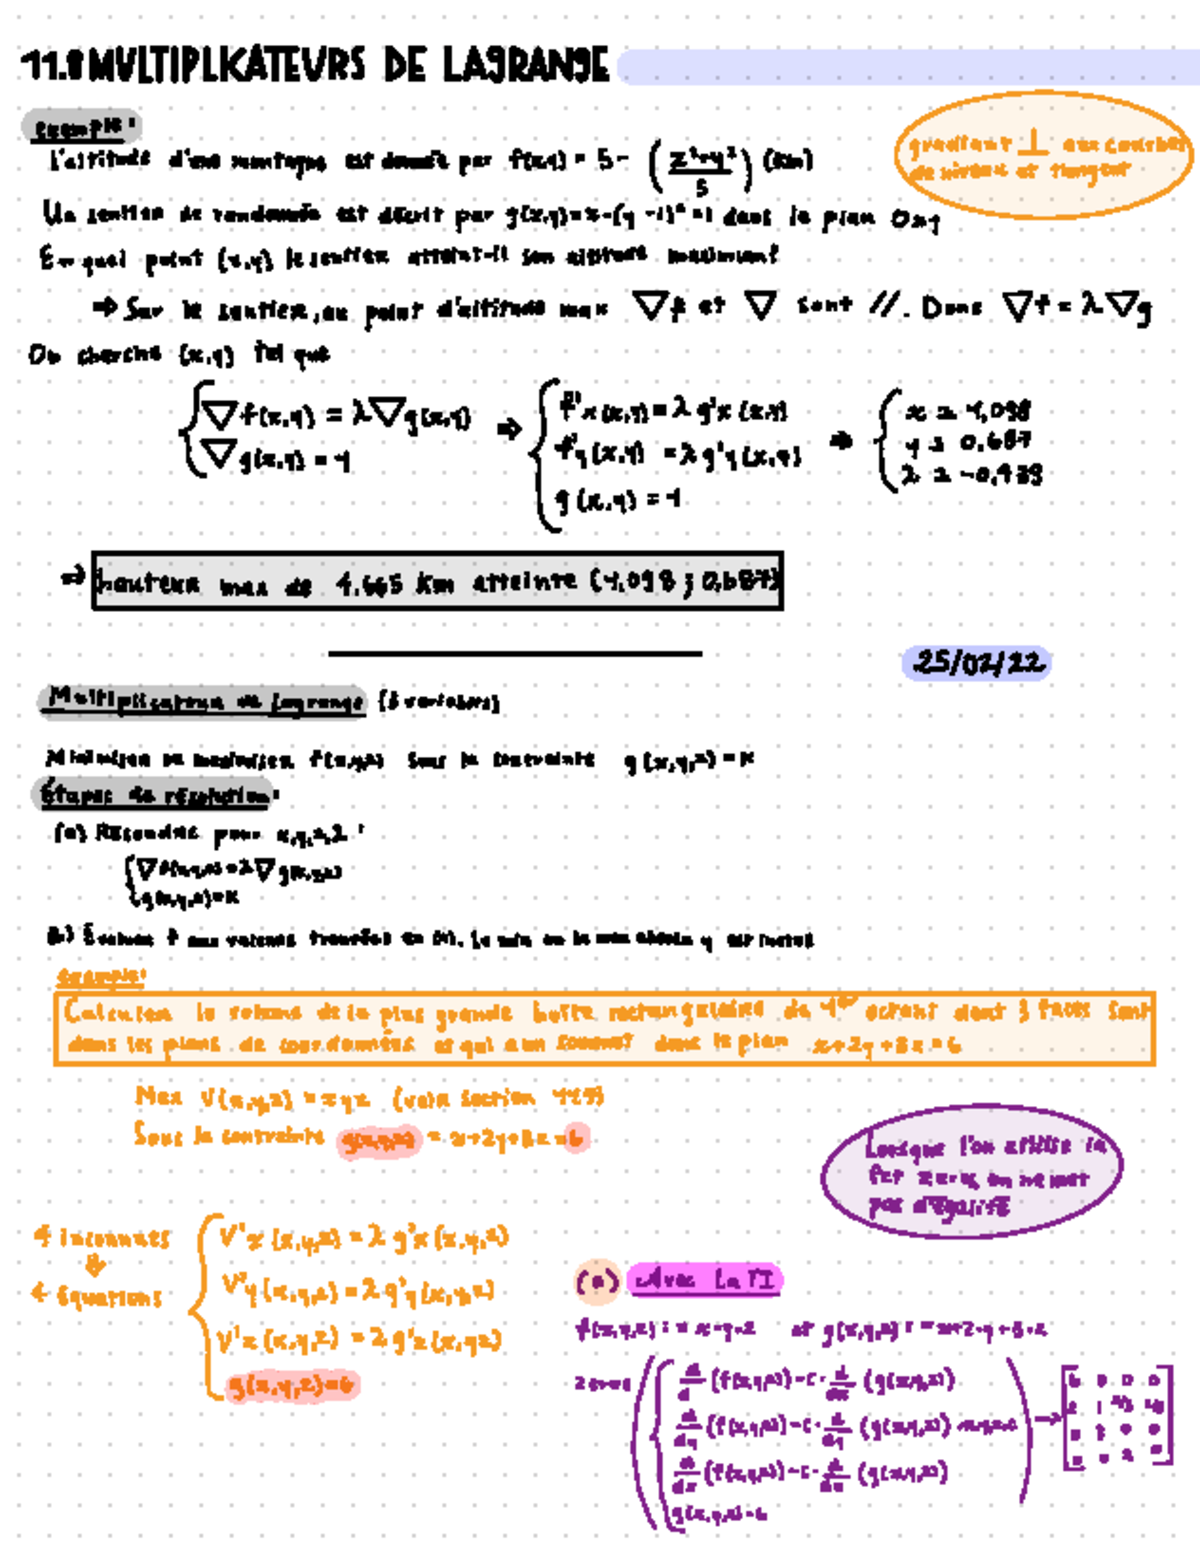 11.8 MULTIPLICATEURS DE LAGRANGE
exemple:
L'altitude d'une montagne est donnée par f(x,y) = 5 - (x²+y²/5) (km)
gradient ⊥ aux courbes
de niveau et tangent
Un sentier de randonnée est décrit par g(x,y)=x-(y-1)²=1 dans le plan Oxy
En quel point (x,y) le sentier atteint-il son altitude maximum?
⇒ Sur le sentier, au point d'altitude max ∇f et ∇ sont //. Donc ∇f = λ∇g
On cherche (x,y) tel que
{ ∇f(x,y) = λ∇g(x,y)
∇g(x,y) = 1
⇒ { f'x(x,y) = λ g'x(x,y)
f'y(x,y) = λ g'y(x,y)
g(x,y) = 1
⇒ { x = 1,098
y = 0,687
λ = -0,439
⇒ hauteur max de 4.665 km atteinte (1,098 ; 0,687)
25/02/22
Multiplicateur de Lagrange (3 variables)
Minimiser ou maximiser f(x,y,z) sous la contrainte g(x,y,z)=K
Étapes de résolution:
(a) Résoudre pour x,y,z,λ :
{ ∇f(x,y,z)=λ∇g(x,y,z)
g(x,y,z)=K
b.) Évaluer f aux valeurs trouvées en (a). Le min ou le max
exemple:
Calculer le volume de la plus grande boîte rectangulaire du 1er octant dont 3 faces sont
dans les plans de coordonnées et qui a un sommet dans le plan x+2y+3z=6
Max V(x,y,z) = xyz (voir section 11.7)
Sous la contrainte g(x,y,z) = x+2y+3z=6
Lorsque l'on utilise la
fct zeros, on ne met
pas d'égalité
4 inconnues
↓
4 Équations
{ V'x(x,y,z) = λ g'x(x,y,z)
V'y(x,y,z) = λ g'y(x,y,z)
V'z(x,y,z) = λ g'z(x,y,z)
g(x,y,z)=6
(a) Avec la TI
f(x,y,z) := x·y·z et g(x,y,z) := x+2·y+3·z
zeros